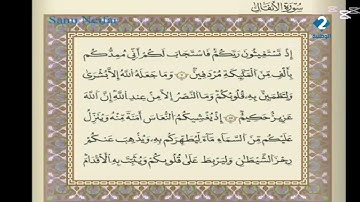 Sann Nesfat
سورة الأنفال
2
الوطنية
إِذْ تَسْتَغِيثُونَ رَبَّكُمْ فَاسْتَجَابَ لَكُمْ أَنِّي مُمِدُّكُم
بِأَلْفٍ مِّنَ الْمَلَائِكَةِ مُرْدِفِينَ ۝ وَمَا جَعَلَهُ اللَّهُ إِلَّا بُشْرَىٰ
وَلِتَطْمَئِنَّ بِهِ قُلُوبُكُمْ وَمَا النَّصْرُ إِلَّا مِنْ عِندِ اللَّهِ إِنَّ اللَّهَ
عَزِيزٌ حَكِيمٌ ۝ إِذْ يُغَشِّيكُمُ النُّعَاسَ أَمَنَةً مِّنْهُ وَيُنَزِّلُ
عَلَيْكُم مِّنَ السَّمَاءِ مَاءً لِّيُطَهِّرَكُم بِهِ وَيُذْهِبَ عَنكُمْ
رِجْزَ الشَّيْطَانِ وَلِيَرْبِطَ عَلَىٰ قُلُوبِكُمْ وَيُثَبِّتَ بِهِ الْأَقْدَامَ